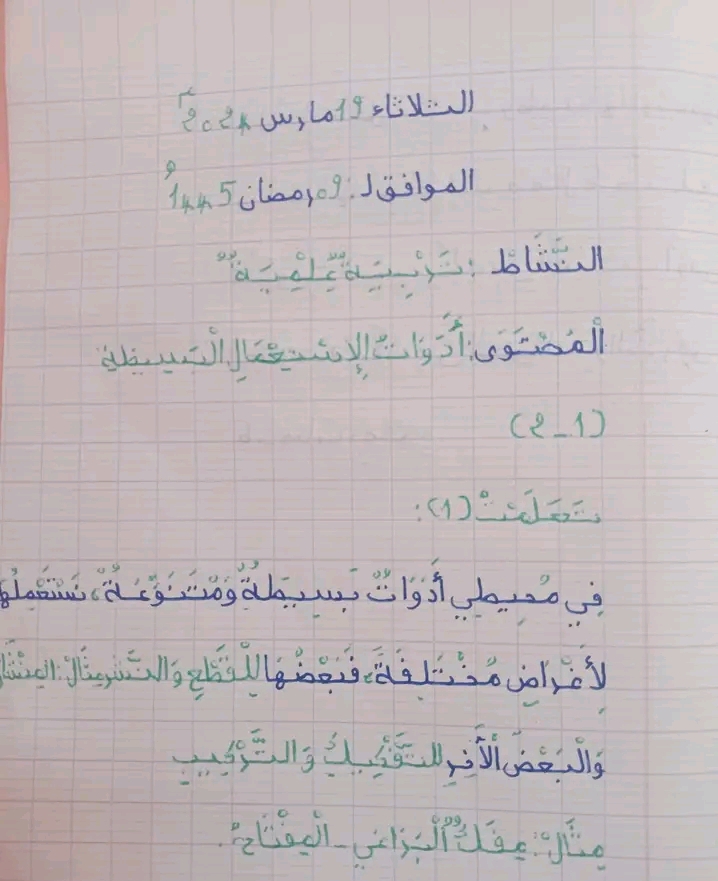 الثلاثاء 19 مارس 2024م
الموافق لـ: 09 رمضان 1445هـ
النَّشَاطُ : تَرْبِيَةٌ عِلْمِيَةٌ
الْمُحْتَوَى: أَدَوَاتُ الِإسْتِعْمَالِ الْبَسِيطَةِ
(1-2)
تَعَلَمْتْ (1):
فِي مُحِيطِي أَدَوَاتٌ بَسِيطَةٌ وَمُتَنَوِّعَةٌ، نَسْتَعْمِلُهَا
لِأَغْرَاضٍ مُخْتَلِفَةٍ، فَبَعْضُهَا لِلْقَطْعِ وَالنَّشْرِ مِثَالْ: المِنْشَار
وَالْبَعْضُ الْأَخِرِ للتَّفْكِيكِ وَالتَّرْكِيبِ
مِثَالْ: مِفَكُّ الْبَرَاغِي - الْمِفْتَاحُ.